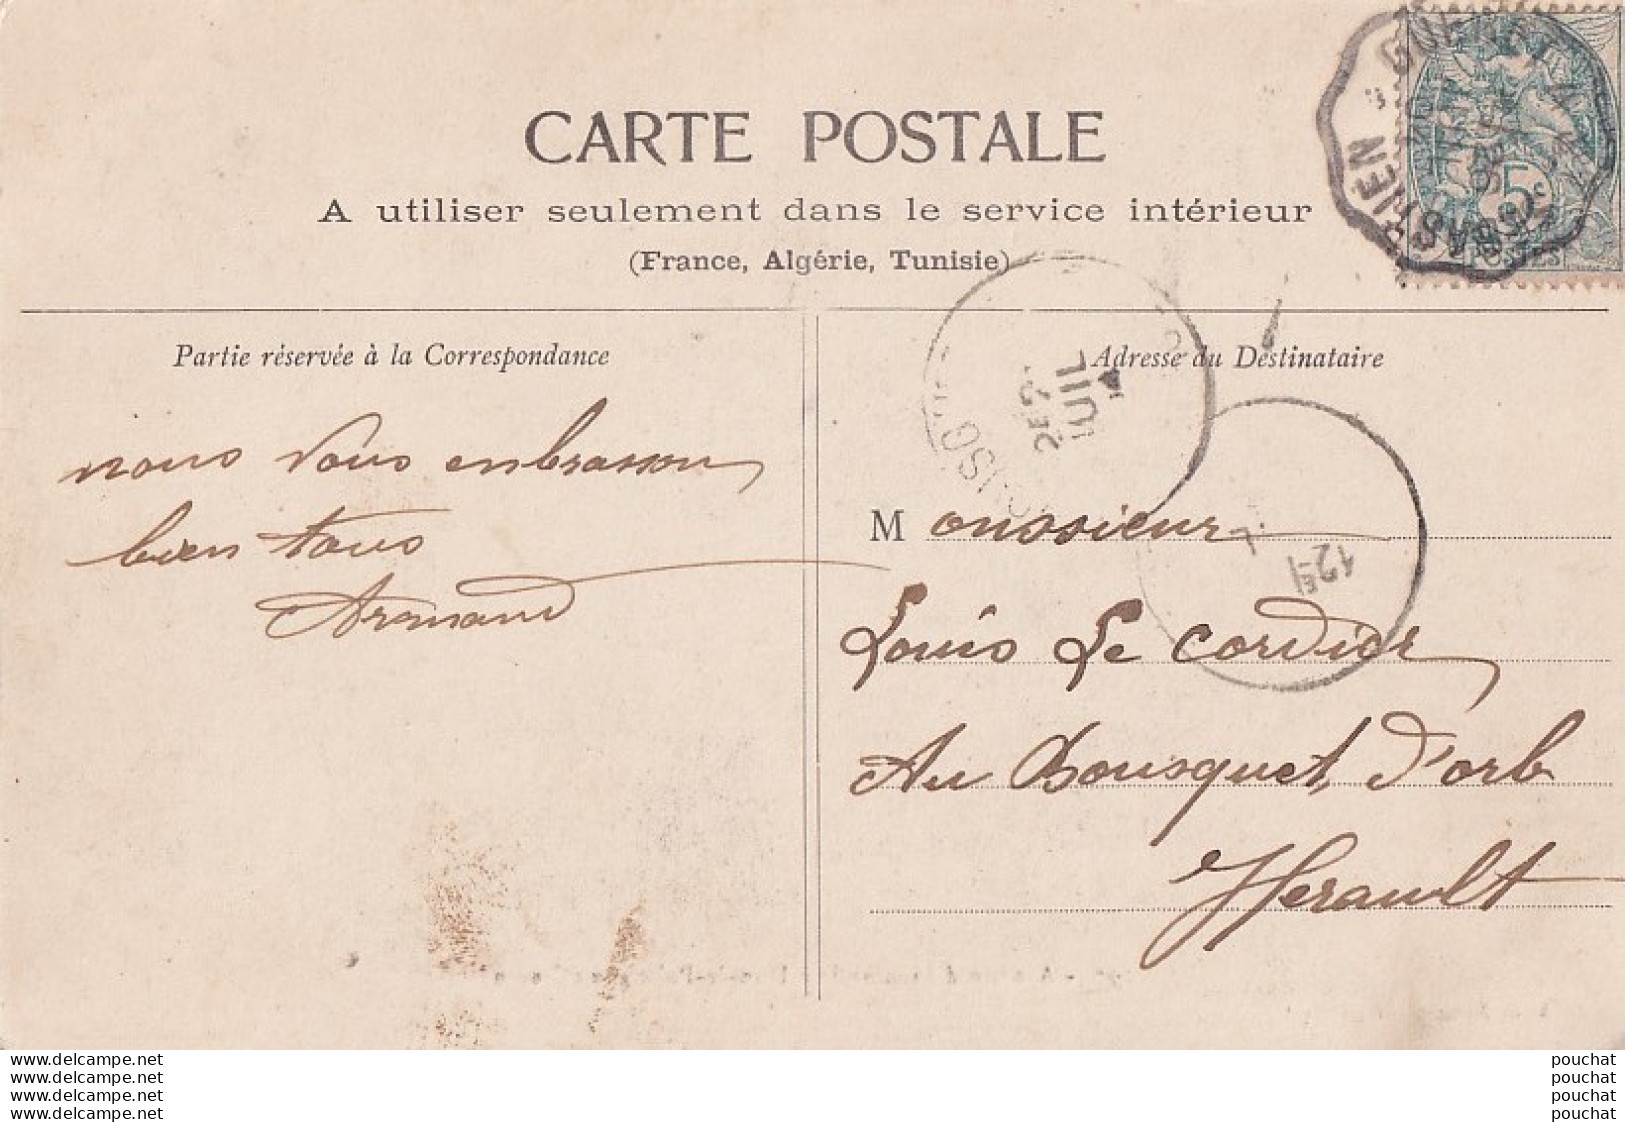 CARTE POSTALE
A utiliser seulement dans le service intérieur
(France, Algérie, Tunisie)
Partie réservée à la Correspondance
nous vous enbrasson
bien tous
Armand
Adresse du Destinataire
Monssieur
Louis Le Cordier
Au Bousquet, d'orb
Herault
5
POSTES
JUIL
12
www.delcampe.net
www.delcampe.net
www.delcampe.net
www.delcampe.net
pouchat
pouchat
pouchat
pouchat